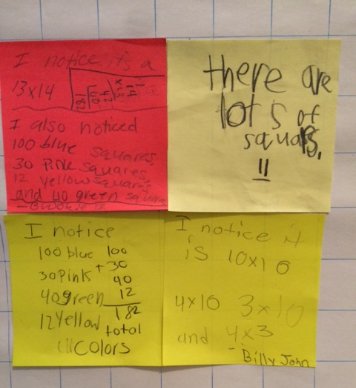 I notice it's a
13x14
I also noticed
100 blue squares
30 Pink squares
12 yellow squares
and 40 green square
there are
lots of
squares.
!!
I notice
100 blue 100
30 pinks + 30
40 green 40
12 yellow 12
182
total
colors
I notice it
is 10x10
4x10 3x10
and 4x3
- Billy John